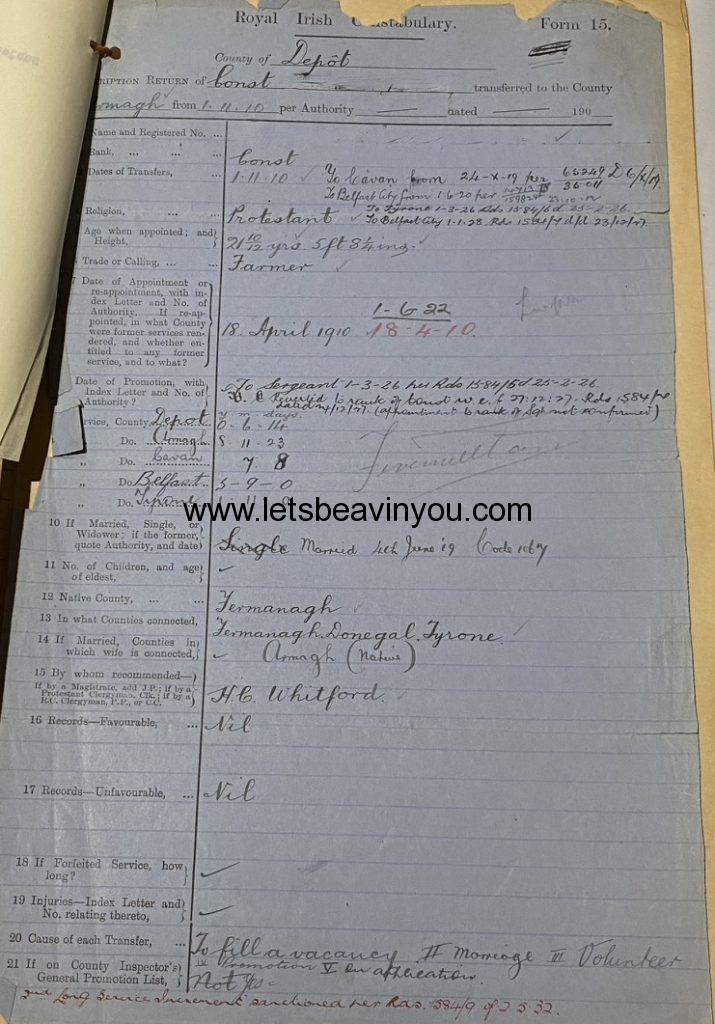 Royal Irish Constabulary. Form 15.
County of Depôt
RIPTION RETURN of Const transferred to the County
rmagh from 1.11.10 per Authority — dated — 190
Name and Registered No. ...
Rank, ... Const
Dates of Transfers, ... 1.11.10 To Cavan from 24-X-19 per 65249 D 6/X/19.
To Belfast City from 1-6-20 per
To Tyrone 1-3-26 Rds 1584/5d 25-2-26.
Religion, ... Protestant To Belfast City 1-1-28. Rds 1584/7 d/d 23/12/27
Age when appointed; and Height, 21 10/12 yrs. 5ft 8¼ ins.
Trade or Calling, ... Farmer
7 Date of Appointment or
re-appointment, with in-
dex Letter and No. of
Authority. If re-ap-
pointed, in what County
were former services ren-
dered, and whether en-
titled to any former
service, and to what?
1-6-22
18. April 1910 18-4-10.
Date of Promotion, with
Index Letter and No. of
Authority?
To Sergeant 1-3-26 per Rds 1584/5d 25-2-26.
Reverted to rank of Const w.e.f 27:12:27. Rds 1584/
dated 24/12/27. (appointment to rank of Sgt not confirmed)
y m days.
rvice, County Depot 0-6-14
Do. Armagh 8 11-23
" Do. Cavan 7 8
Fivemiletown
" Do. Belfast 5-9-0
" Do. Tyrone 1-11-0
www.letsbeavinyou.com
10 If Married, Single, or
Widower; if the former,
quote Authority, and date
Single Married 4th June '19 Code 1067
11 No. of Children, and age
of eldest,
12 Native County, ... Fermanagh
13 In what Counties connected, Fermanagh, Donegal, Tyrone.
14 If Married, Counties in
which wife is connected,
Armagh (Native)
15 By whom recommended—
If by a Magistrate, add J.P.; if by a
Protestant Clergyman, Clk.; if by a
R.C. Clergyman, P.P., or C.C.
H.C. Whitford.
16 Records—Favourable, ... Nil
17 Records—Unfavourable, ... Nil
18 If Forfeited Service, how
long?
19 Injuries—Index Letter and
No. relating thereto,
20 Cause of each Transfer, ... To fill a vacancy II Marriage III Volunteer
IV Promotion V On application.
21 If on County Inspector's
General Promotion List,
Not Yes
2nd Long Service Increment sanctioned per Rds. 584/9 of 2.5.32.